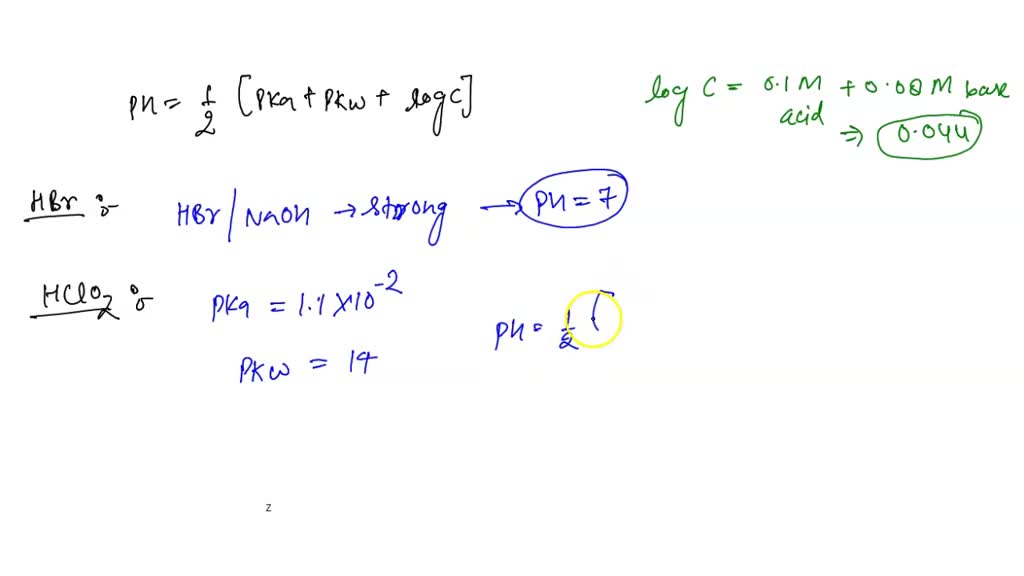 PH = 1/2 [PKa + PKw + log C]
log C = 0.1 M + 0.08 M base
acid
⇒ 0.044
HBr :-
HBr / NaOH → strong → PH = 7
HClO2 :-
PKa = 1.1 × 10^-2
PH = 1/2 (
PKw = 14
z